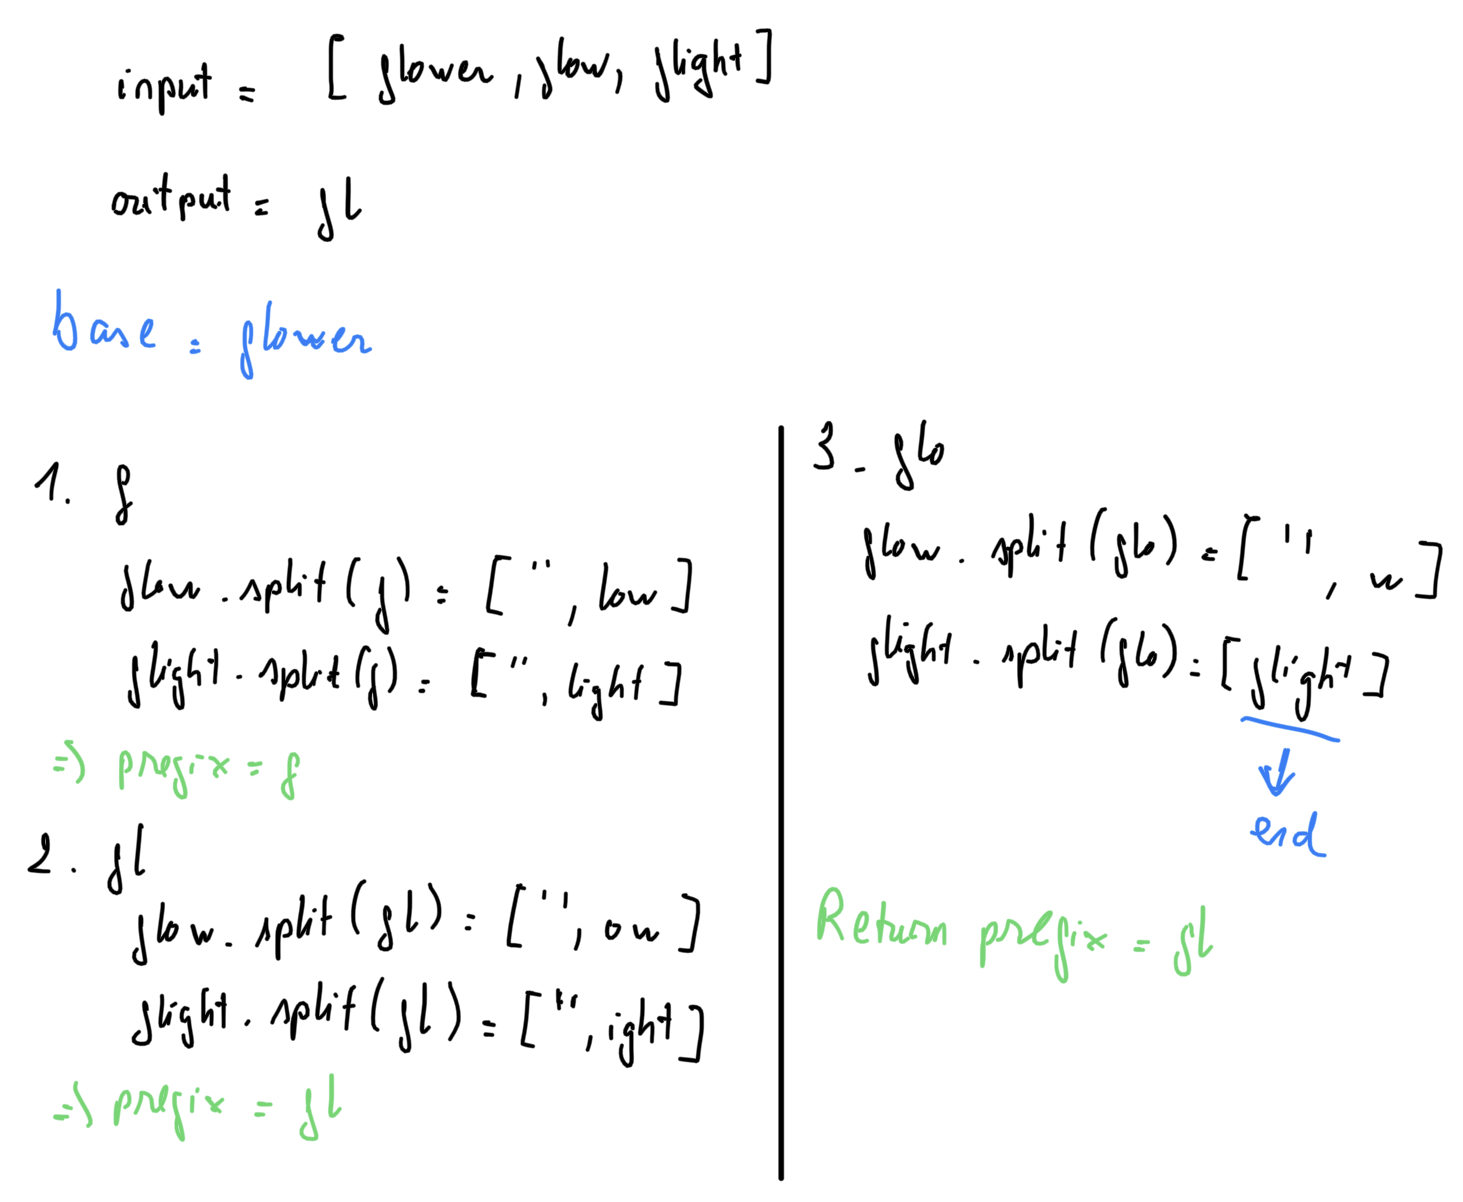 input = [ flower, flow, flight ]
output = fl
base = flower
1. f
flow.split(f) = ["", low]
flight.split(f) = ["", light]
=> prefix = f
2. fl
flow.split(fl) = ['', ow]
flight.split(fl) = ["", ight]
=> prefix = fl
3. flo
flow.split(flo) = ['', w]
flight.split(flo) = [flight]
end
Return prefix = fl